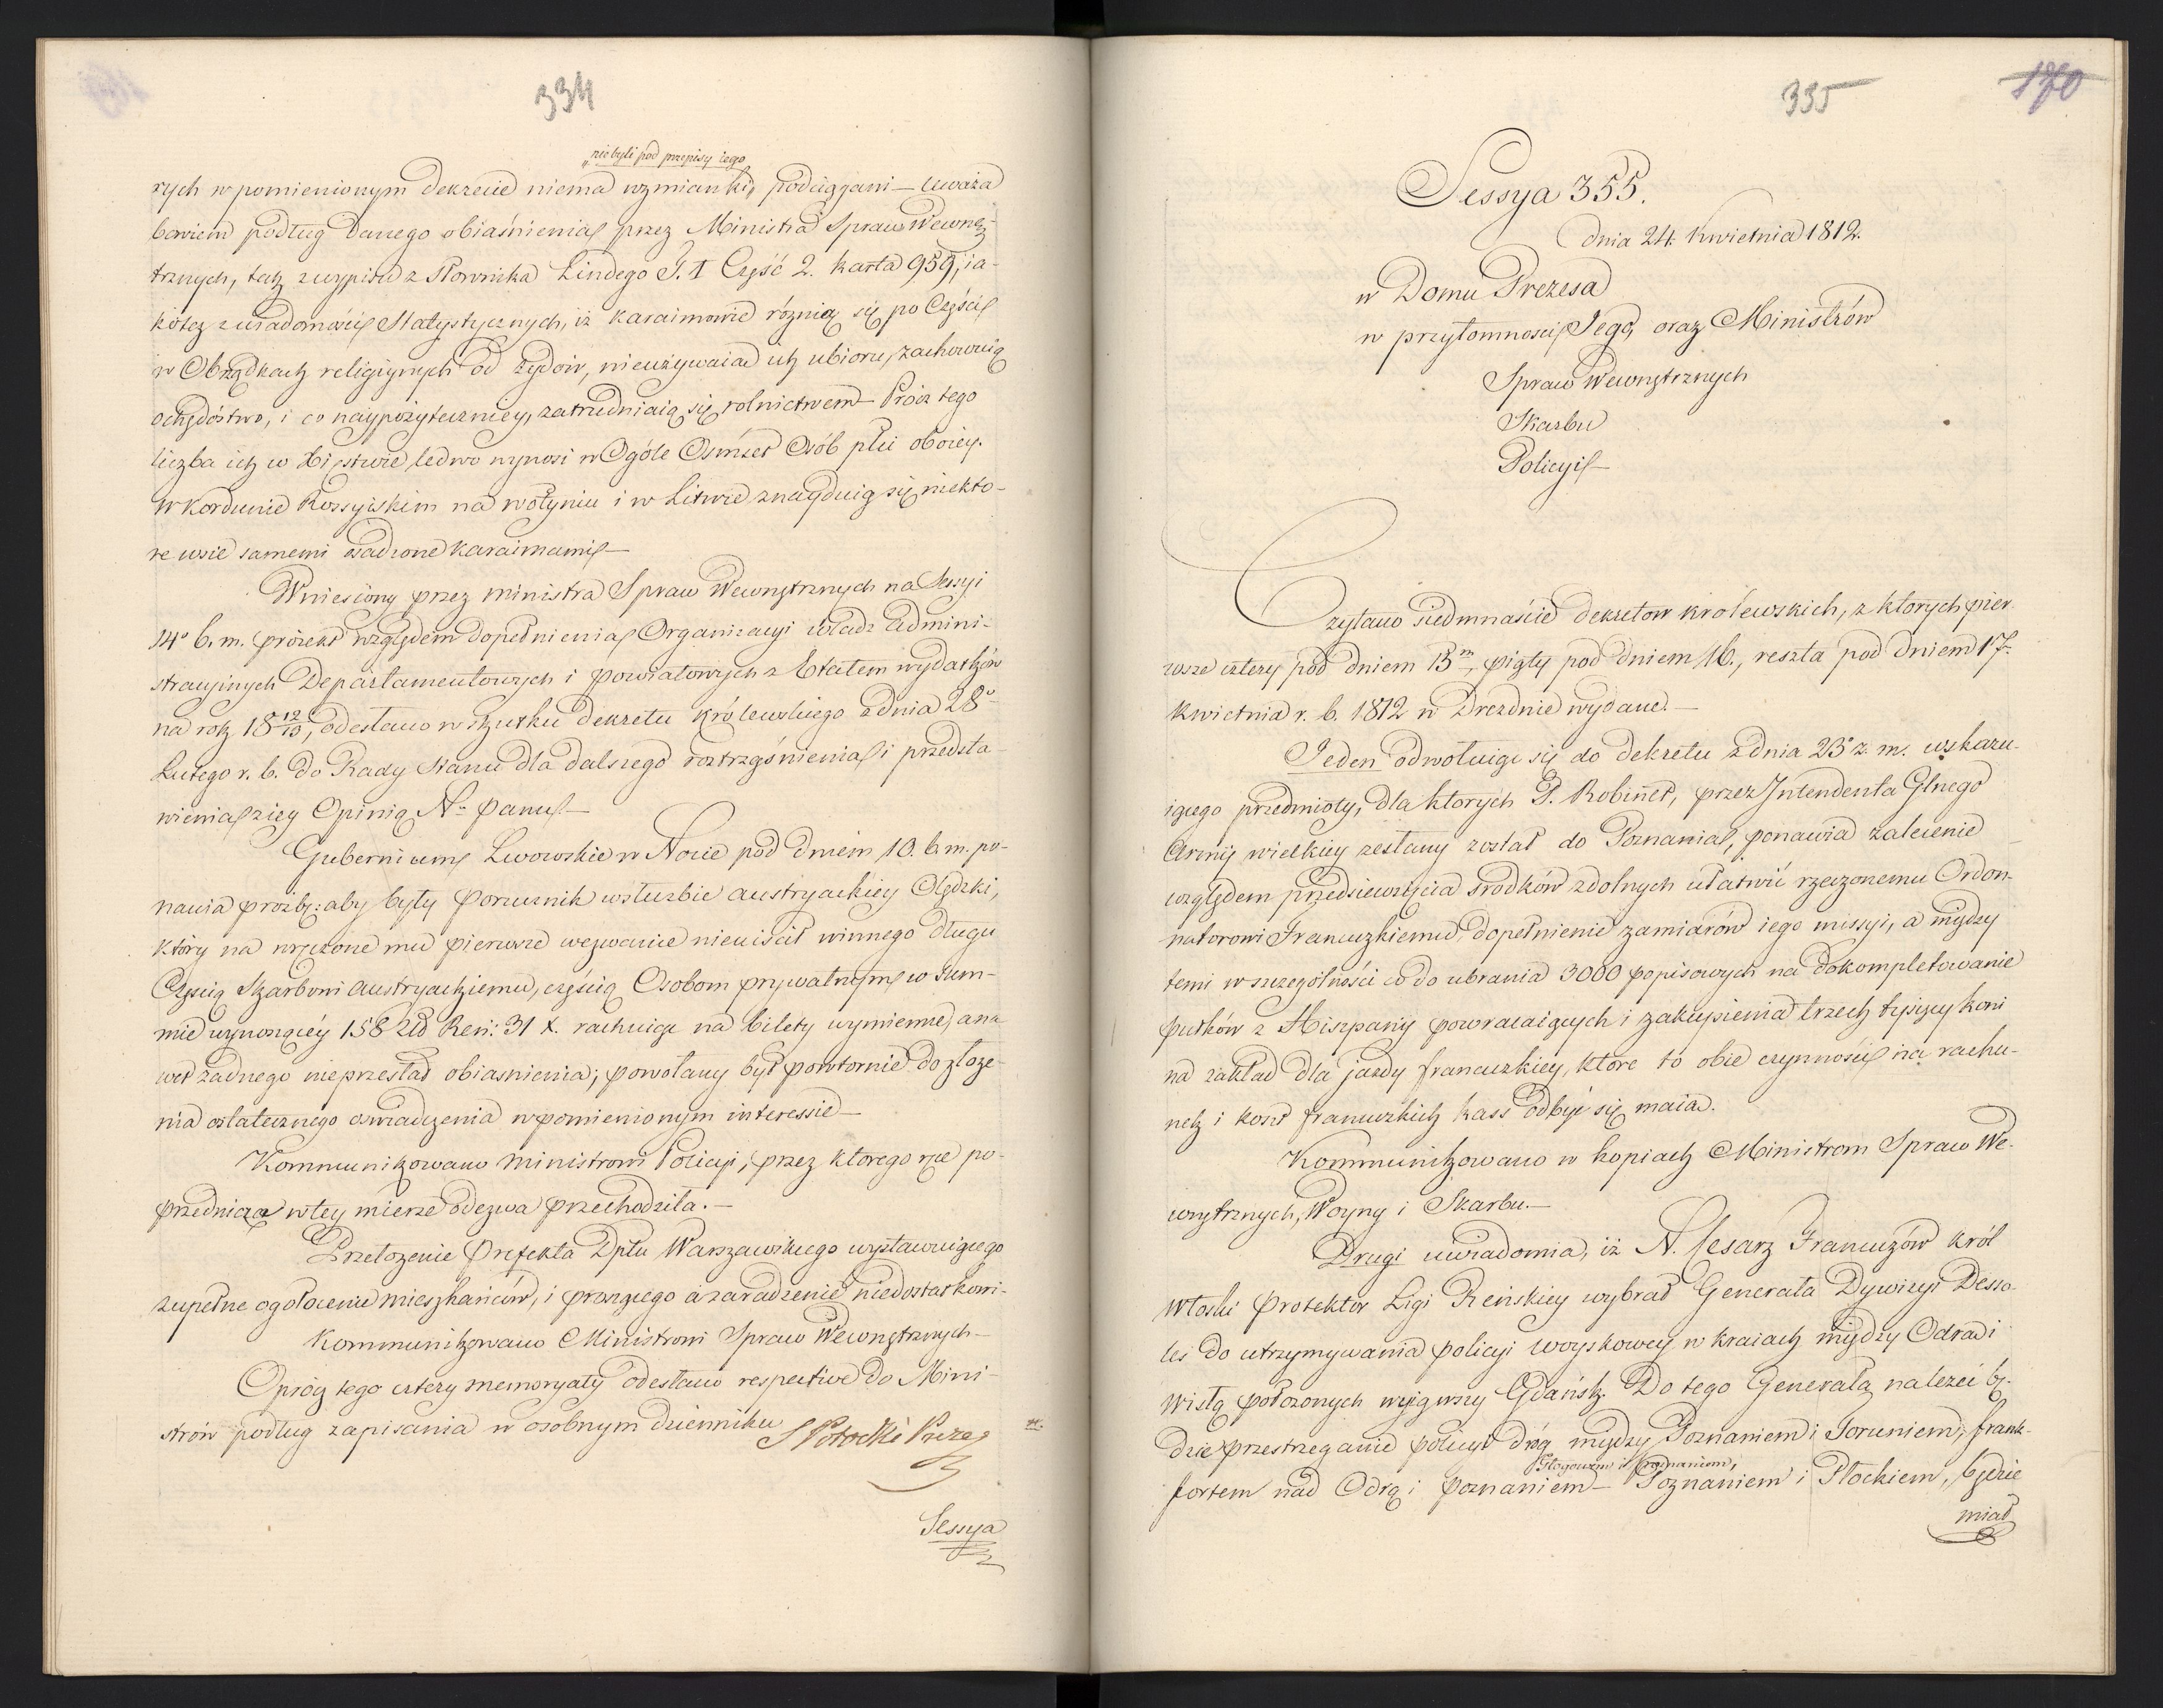 334
„niebyli pod przepisy iego
rych wpomienionym dekrecie niema wzmianki, podciągani — uważa
bowiem podług danego obiaśnienia przez Ministra Spraw Wewnę-
trznych, tak z wypisu z Słownika Lindego T. I Część 2. karta 959, ia-
koteż z wiadomości Statystycznych, iż karaimowie różnią się po Części
w Obrządkach religiynych od żydów, nieużywaią ich ubioru, zachowuią
ochędóstwo, i co naypożyteczniey, zatrudniaią się rolnictwem — Prócz tego
liczba ich w Xięstwie ledwo wynosi w Ogóle Osmset Osób płci oboiey.
W kordunie Rossyiskim na wołyniu i w Litwie znayduią się niekto-
re wsie samemi osadzone karaimami —
Wniesiony przez ministra Spraw Wewnętrznych na Sessyi
14° b. m. proiekt względem dopełnienia Organizacyi władz Admini-
stracyinych Departamentowych i powiatowych z Etatem wydatków
na rok 18 12/13, odesłano w skutku dekretu królewskiego z dnia 28°
Lutego r. b. do Rady Stanu dla dalszego roztrząśnienia i przedsta-
wienia z iey Opinią N° Panu —
Gubernium Lwowskie w Nocie pod dniem 10. b. m. po-
nawia prozbę: aby były Porucznik w służbie austryackiey Olędzki,
który na wręczone mu pierwsze wezwanie nieuiścił winnego długu
Częścią Skarbowi austryackiemu, częścią Osobom prywatnym w sum-
mie wynoszącey 158 Złd Reń: 31 X. rachuiąc na bilety wymienne, ana-
wet żadnego nieprzesłał obiasnienia; powołany był powtornie do złoże-
nia ostatecznego oswiadczenia w pomienionym interessie —
Kommunikowano ministrowi Policyi, przez ktorego ręce po-
przednicza w tey mierze odezwa przechodziła. —
Przełożenie Prefekta Dptu Warszawskiego wystawuiącego
zupełne ogołocenie mieszkańców, i proszącego o zaradzenie niedostatkowi -
Kommunikowano Ministrowi Spraw Wewnętrznych —
Oprócz tego cztery memoryały odesłano respective do Mini-
strów podług zapisania w osobnym dzienniku
S Potocki Prezes
Sessya
335
170
Sessya 355.
dnia 24. Kwietnia 1812.
w Domu Prezesa
w przytomności Jego, oraz Ministrów
Spraw Wewnętrznych
Skarbu
Policyi —
Czytano siedmnaście dekretow krolewskich, z ktorych pier-
wsze cztery pod dniem 13m, piąty pod dniem 16., reszta pod dniem 17.
Kwietnia r. b. 1812 w Dreznie wydane. —
Jeden odwołuiąc się do dekretu z dnia 23° z. m. wskazu-
iącego przedmioty, dla ktorych P. Robinet, przez Intendenta Glnego
Armij wielkiey zesłany został do Poznania, ponawia zalecenie
względem przedsiewzięcia srodków zdolnych ułatwić rzeczonemu Ordon-
natorowi Francuzkiemu, dopełnienie zamiarów iego missyi, a między
temi w szczegolności co do ubrania 3000 popisowych na dokompletowanie
pułków z Hiszpanij powracaiących i zakupienia trzech tysięcy koni
na zakład dla jazdy francuzkiey, ktore to obie czynności na rachu-
nek i koszt francuzkich kass odbyć się maią.
Kommunikowano w kopiach Ministrom Spraw We-
wnętrznych, Woyny i Skarbu. —
Drugi uwiadomia, iż N. Cesarz Francuzów Król
Włoski Protektor Ligi Reńskiey wybrał Generała Dywizyi Desso-
les do utrzymywania policyi woyskowey w kraiach między Odrą i
Wisłą położonych wyiąwszy Gdańsk. Do tego Generała należeć bę-
dzie przestrzeganie policyi dróg między Poznaniem i Toruniem, frank-
Głogowem i Poznaniem,
fortem nad Odrą i poznaniem — Poznaniem i Płockiem, będzie
miał